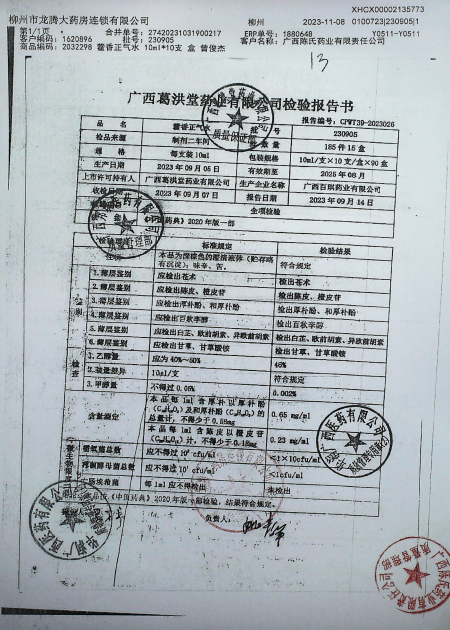 XHCX00002135773
柳州市龙腾大药房连锁有限公司 柳州 2023-11-08 0100723|230905|1
第1/1页 合并单号: 27420231031900217 ERP单号: 1880648 Y0511-Y0511
客户编码: 1620896 批号: 230905 客户名称: 广西陈氏药业有限责任公司
商品编码: 2032298 藿香正气水 10ml*10支 盒 曾俊杰
13
广西葛洪堂药业有限公司检验报告书
报告编号: CPWT39-2023026
品名 藿香正气水 批号 230905
检品来源 制剂二车间 数量 185件15盒
规格 每支装10ml 包装规格 10ml/支×10支/盒×90盒
生产日期 2023年09月05日 有效期至 2025年08月
上市许可持有人 广西葛洪堂药业有限公司 生产企业名称 广西百琪药业有限公司
收检日期 2023年09月07日 报告日期 2023年09月14日
全项检验
药典》2020年版一部
标准规定 检验结果
本品为深棕色的澄清液体(贮存略有沉淀);味辛、苦。 符合规定
1.薄层鉴别 应检出苍术 检出苍术
2.薄层鉴别 应检出陈皮、橙皮苷 检出陈皮、橙皮苷
3.薄层鉴别 应检出厚朴酚、和厚朴酚 检出厚朴酚、和厚朴酚
4.薄层鉴别 应检出百秋李醇 检出百秋李醇
5.薄层鉴别 应检出白芷、欧前胡素、异欧前胡素 检出白芷、欧前胡素、异欧前胡素
6.薄层鉴别 应检出甘草、甘草酸铵 检出甘草、甘草酸铵
检查 1.乙醇量 应为40%~50% 46%
2.装量差异 10ml/支 符合规定
3.甲醇量 不得过0.05% 0.002%
含量测定 本品每1ml含厚朴以厚朴酚
(C₁₈H₁₈O₂)及和厚朴酚(C₁₈H₁₈O₂)的
总量计,不得少于0.58mg 0.65 mg/ml
本品每1ml含陈皮以橙皮苷
计,不得少于0.18mg 0.23 mg/ml
需氧菌总数 应不得过10² cfu/ml <1×10cfu/ml
霉菌酵母菌总数 应不得过 cfu/ml <1cfu/ml
大肠埃希菌 每1ml应不得检出 未检出
本品按《中国药典》2020年版一部检验,结果符合规定。
负责人:
质量保证部
质量管理部
广西陈氏药业有限责任公司
质量管理部